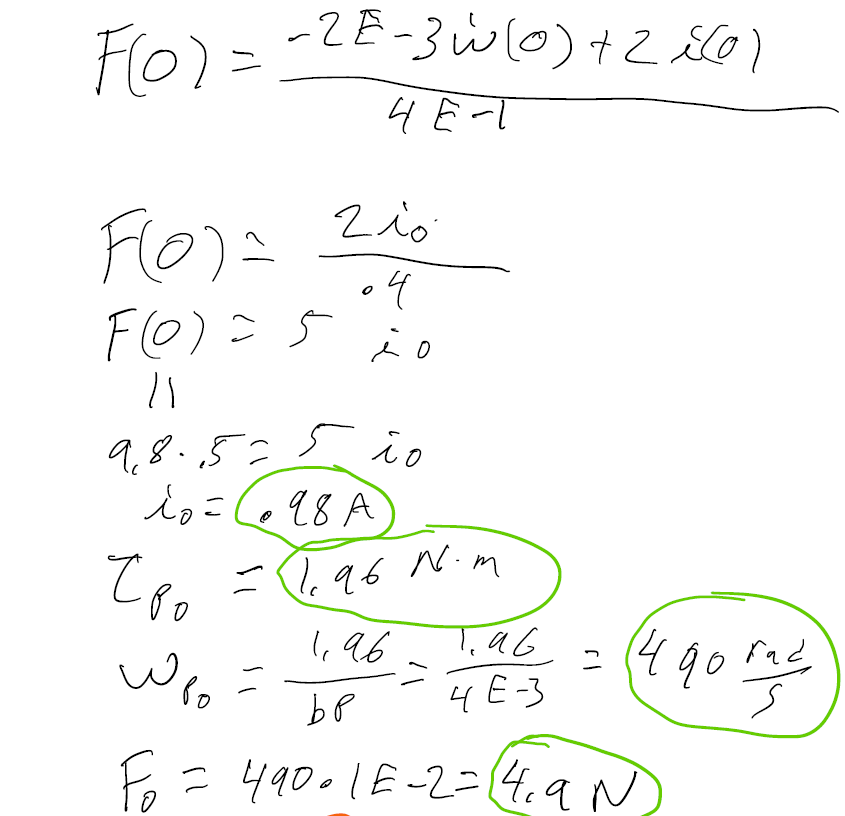 F(0) = -2E-3ẇ(0) + 2i(0)
4E-1
F(0) = 2i₀
.4
F(0) = 5 i₀
||
9.8 · .5 = 5 i₀
i₀ = .98 A
τₚ₀ = 1.96 N·m
ωₚ₀ = 1.96 / bP = 1.96 / 4E-3 = 490 rad/s
F₀ = 490 · 1E-2 = 4.9 N